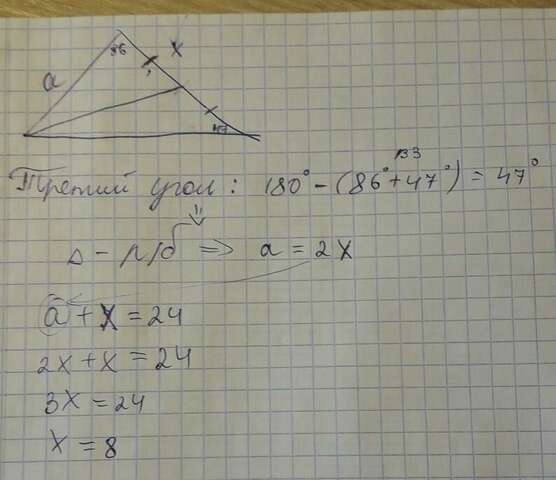 86
x
a
47
133
Третий угол: 180° - (86° + 47°) = 47°
Δ - р/б ⇒ a = 2x
a + x = 24
2x + x = 24
3x = 24
x = 8